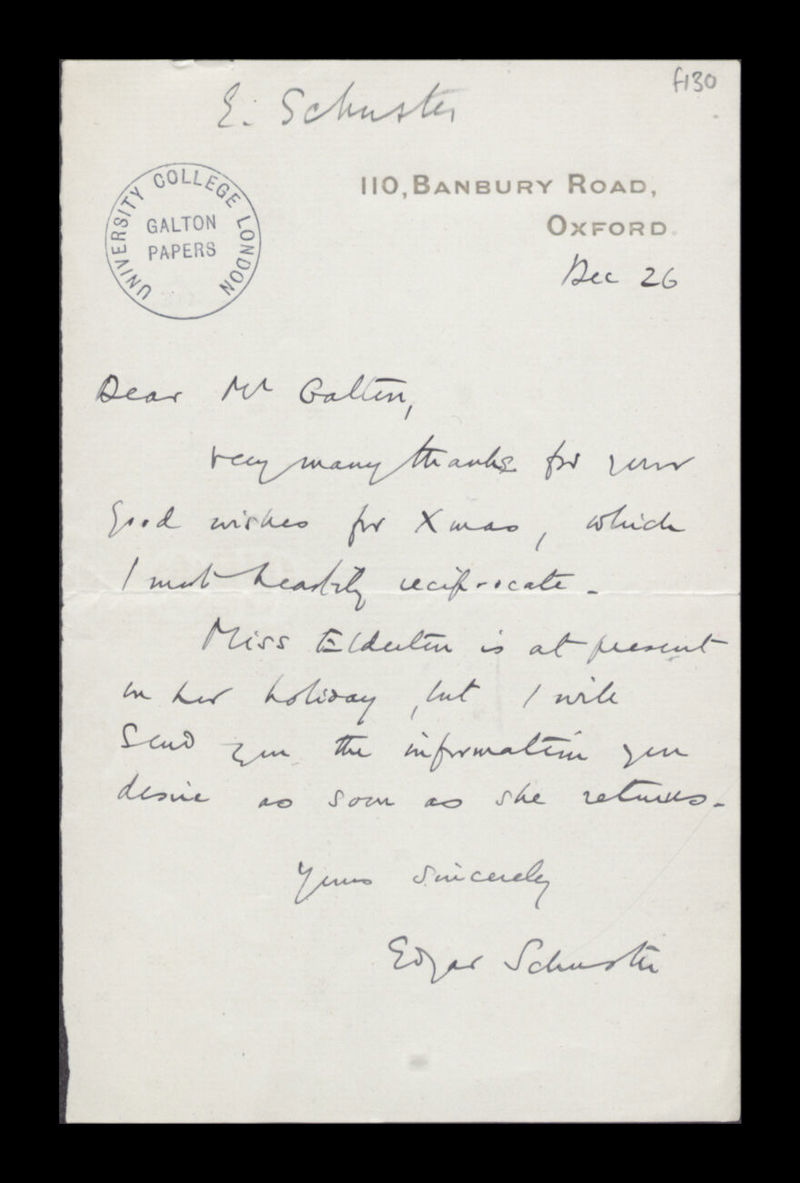 f130
E. Schuster
UNIVERSITY COLLEGE LONDON
GALTON
PAPERS
110, BANBURY ROAD,
OXFORD.
Dec 26
Dear Mr Galton,
very many thanks for your
good wishes for Xmas, which
I most heartily reciprocate.
Miss Elderton is at present
on her holiday, but I will
send you the information you
desire as soon as she returns.
Yours sincerely
Edgar Schuster